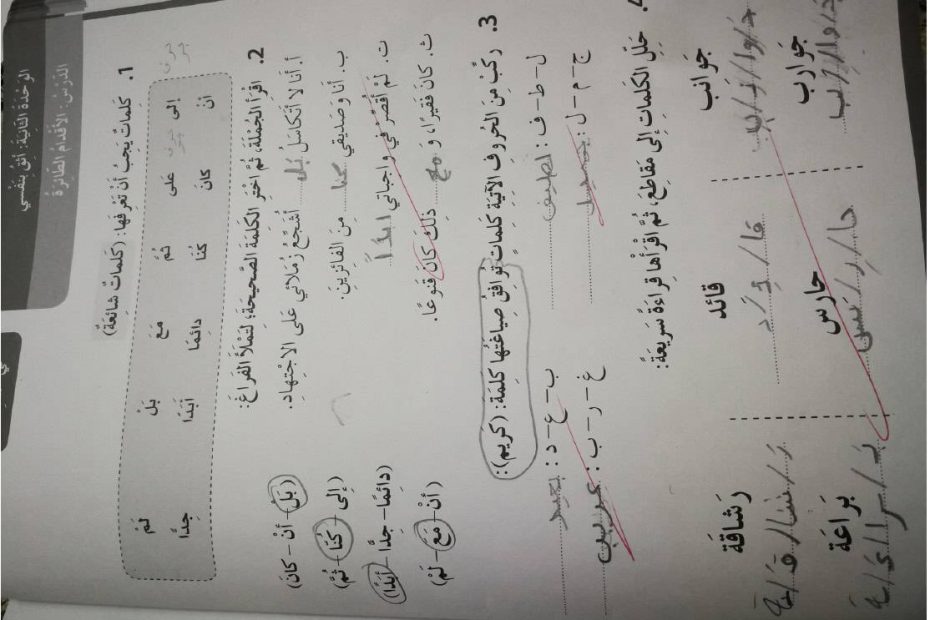 الوحدة الثانية: أثق بنفسي
الدرس: الأقدام الطائرة
1. كلمات يجب أن تعرفها: (كلمات شائعة)
أن إلى على ثم مع بل لم
كان كنا دائما أبدا جدا
2. اقرأ الجملة، ثم اختر الكلمة الصحيحة، لتملأ الفراغ:
أ. أنا لا أتكاسل بل أشجع زملائي على الاجتهاد. (بل - أن - كان)
ب. أنا وصديقي كنا من الفائزين. (إلى - كنا - ثم)
ت. لم أقصر في واجباتي ابدا (دائما - جدا - أبدا)
ث. كان فقيرا، و مع ذلك كان قنوعا. (أن - مع - لم)
3. ركب من الحروف الآتية كلمات توافق صياغتها كلمة: (كريم):
ل - ط - ف : لطيف ب - ع - د : بعيد
ج - م - ل : جميل غ - ر - ب : غريب
4. حلل الكلمات إلى مقاطع، ثم اقرأها قراءة سريعة:
جوانب قائد رشاقة
جـ/وا/نـ/ب قا/ئـ/د ر/شا/قـ/ة
جوارب حارس براعة
جـ/وا/ر/ب حا/ر/س بـ/را/عـ/ة